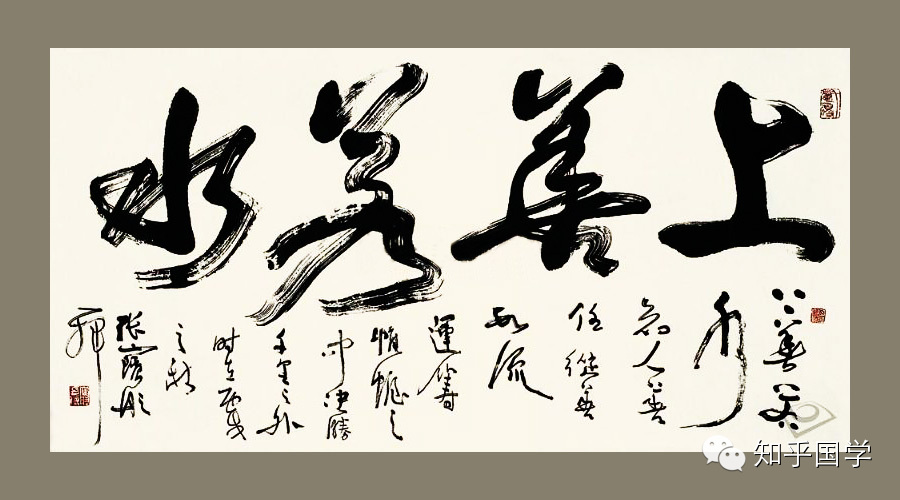 上善若水
上善若
水
為人善
任從善
如流
運籌
帷幄之
中決勝
千里之外
時在
之秋
知乎国学